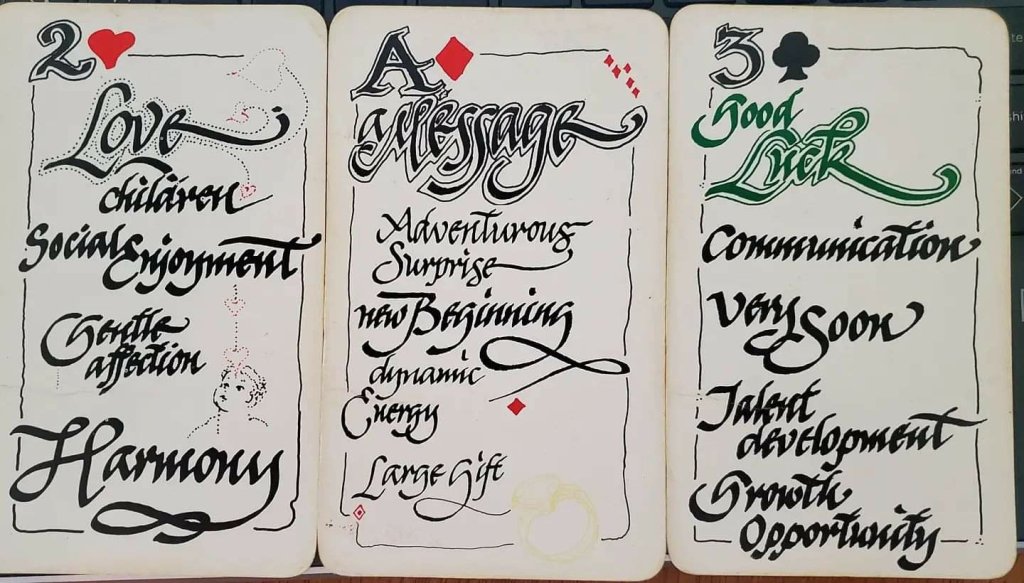 2
Love
children
Social Enjoyment
Gentle
affection
Harmony
A
a Message
Adventurous
Surprise
new Beginning
dynamic
Energy
Large Gift
3
Good
Luck
Communication
Very
Soon
Talent
development
Growth
Opportunity